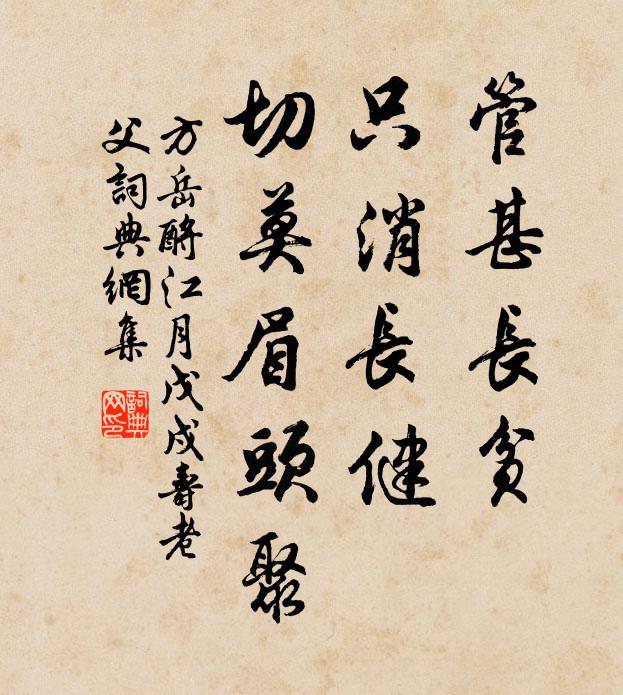 管甚長貧
只消長健
切莫眉頭聚
方岳酹江月戊戌壽老
父詞典網集
詞典
网印